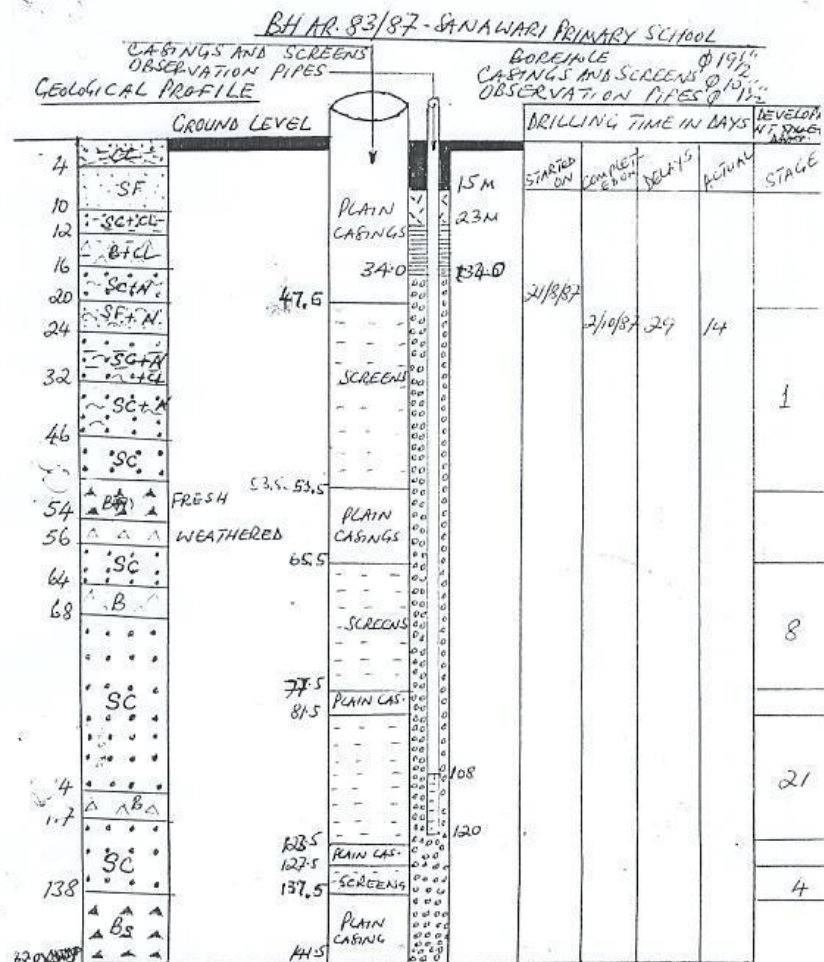 BH AR. 83/87 - SANAWARI PRIMARY SCHOOL
CASINGS AND SCREENS
OBSERVATION PIPES
BOREHOLE φ 19½"
CASINGS AND SCREENS φ 10"
OBSERVATION PIPES φ 1½"
GEOLOGICAL PROFILE
GROUND LEVEL
DRILLING TIME IN DAYS
STARTED ON
COMPLETED ON
DELAYS
ACTUAL
STAGE
CL
4
SF
10
SC+CL
12
B+CL
16
SC+N
20
SF+N
24
SC+N
+CL
32
SC+N
46
SC
54
FRESH
56
WEATHERED
SC
64
B
68
SC
4
B
SC
138
Bs
PLAIN
CASINGS
34.0
47.6
SCREENS
53.5
53.5
PLAIN
CASINGS
65.5
SCREENS
77.5
PLAIN CAS.
81.5
123.5
PLAIN CAS.
127.5
SCREENS
137.5
PLAIN
CASING
141.5
15M
23M
34.0
108
120
21/8/87
2/10/87
29
14
1
8
21
4